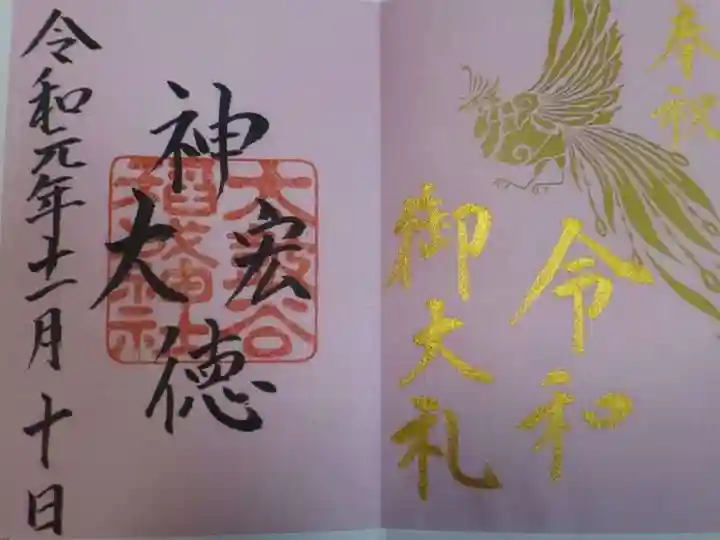 奉祝
令和
御大礼
神徳
宏大
太皷谷
稲成神社
令和元年十一月十日